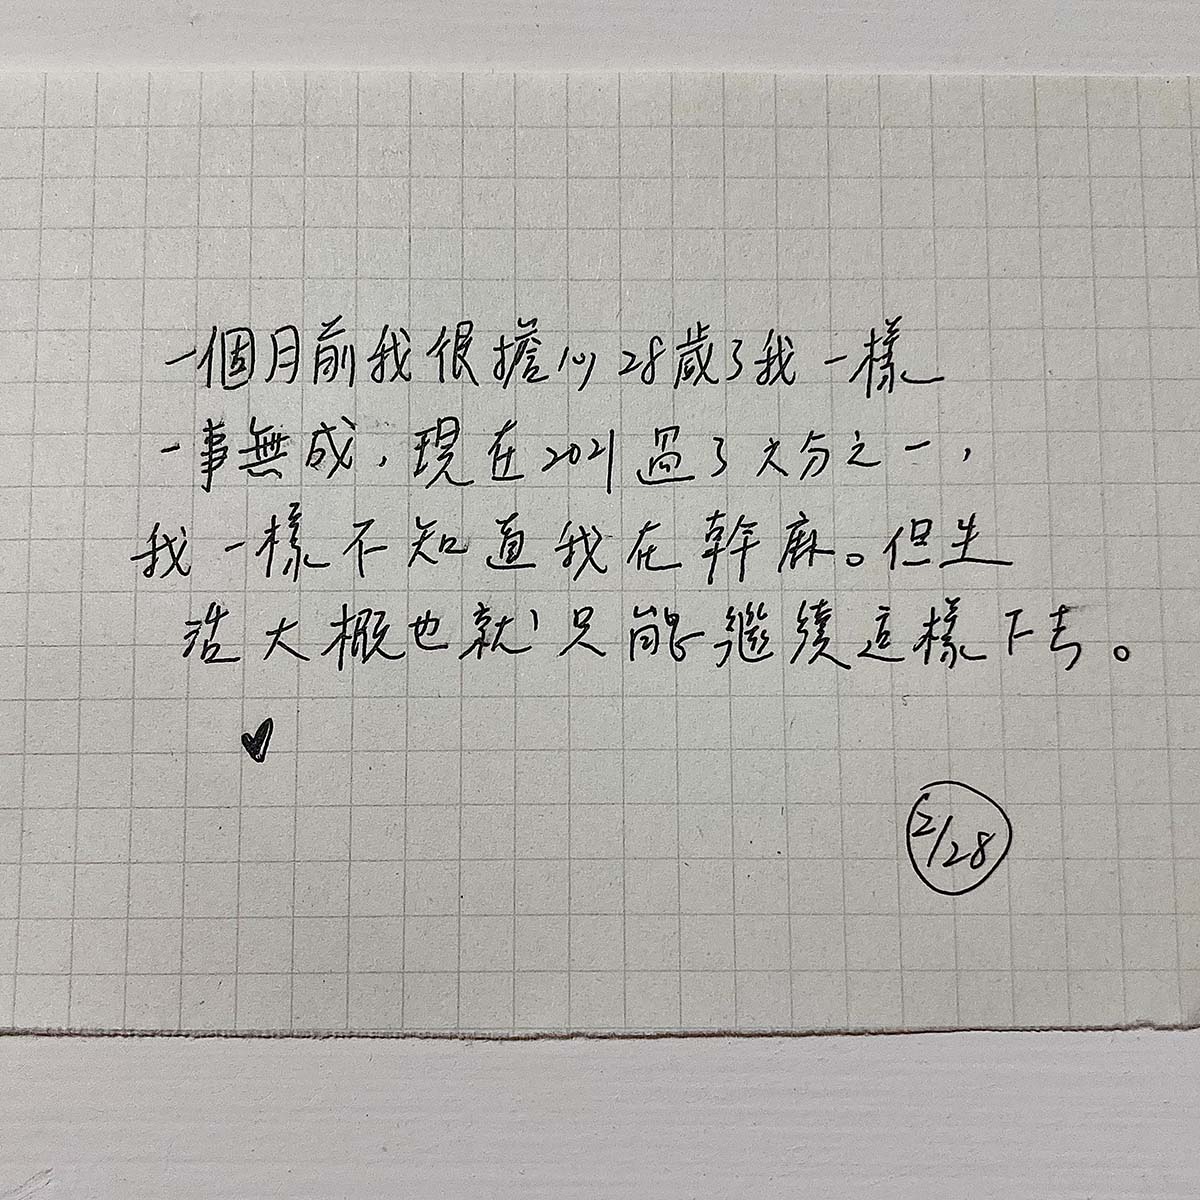 一個月前我很擔心28歲了我一樣
一事無成，現在2021過了六分之一，
我一樣不知道我在幹麻。但生
活大概也就只能繼續這樣下去。
♥
2/28